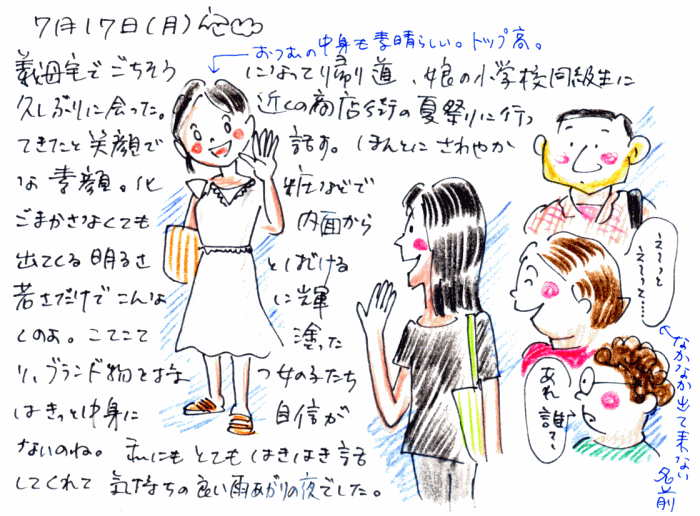 7月17日(月)
おつむの中身も素晴らしい。トップ高。
義母宅でごちそうになって帰り道、娘の小学校同級生に
久しぶりに会った。近くの商店街の夏祭りに行っ
てきたと笑顔で話す。ほんとにさわやか
な素顔。化粧などで
ごまかさなくても内面から
出てくる明るさとはじける
若さだけでこんなに輝
くのよ。こてこて塗った
り、ブランド物をはなつ女の子たち
はきっと中身に自信が
ないのね。私にもとてもはきはき話
してくれて気持ちの良い雨あがりの夜でした。
えーっと
えーっと……
なかなか出て来ない名前
あれ誰で〜